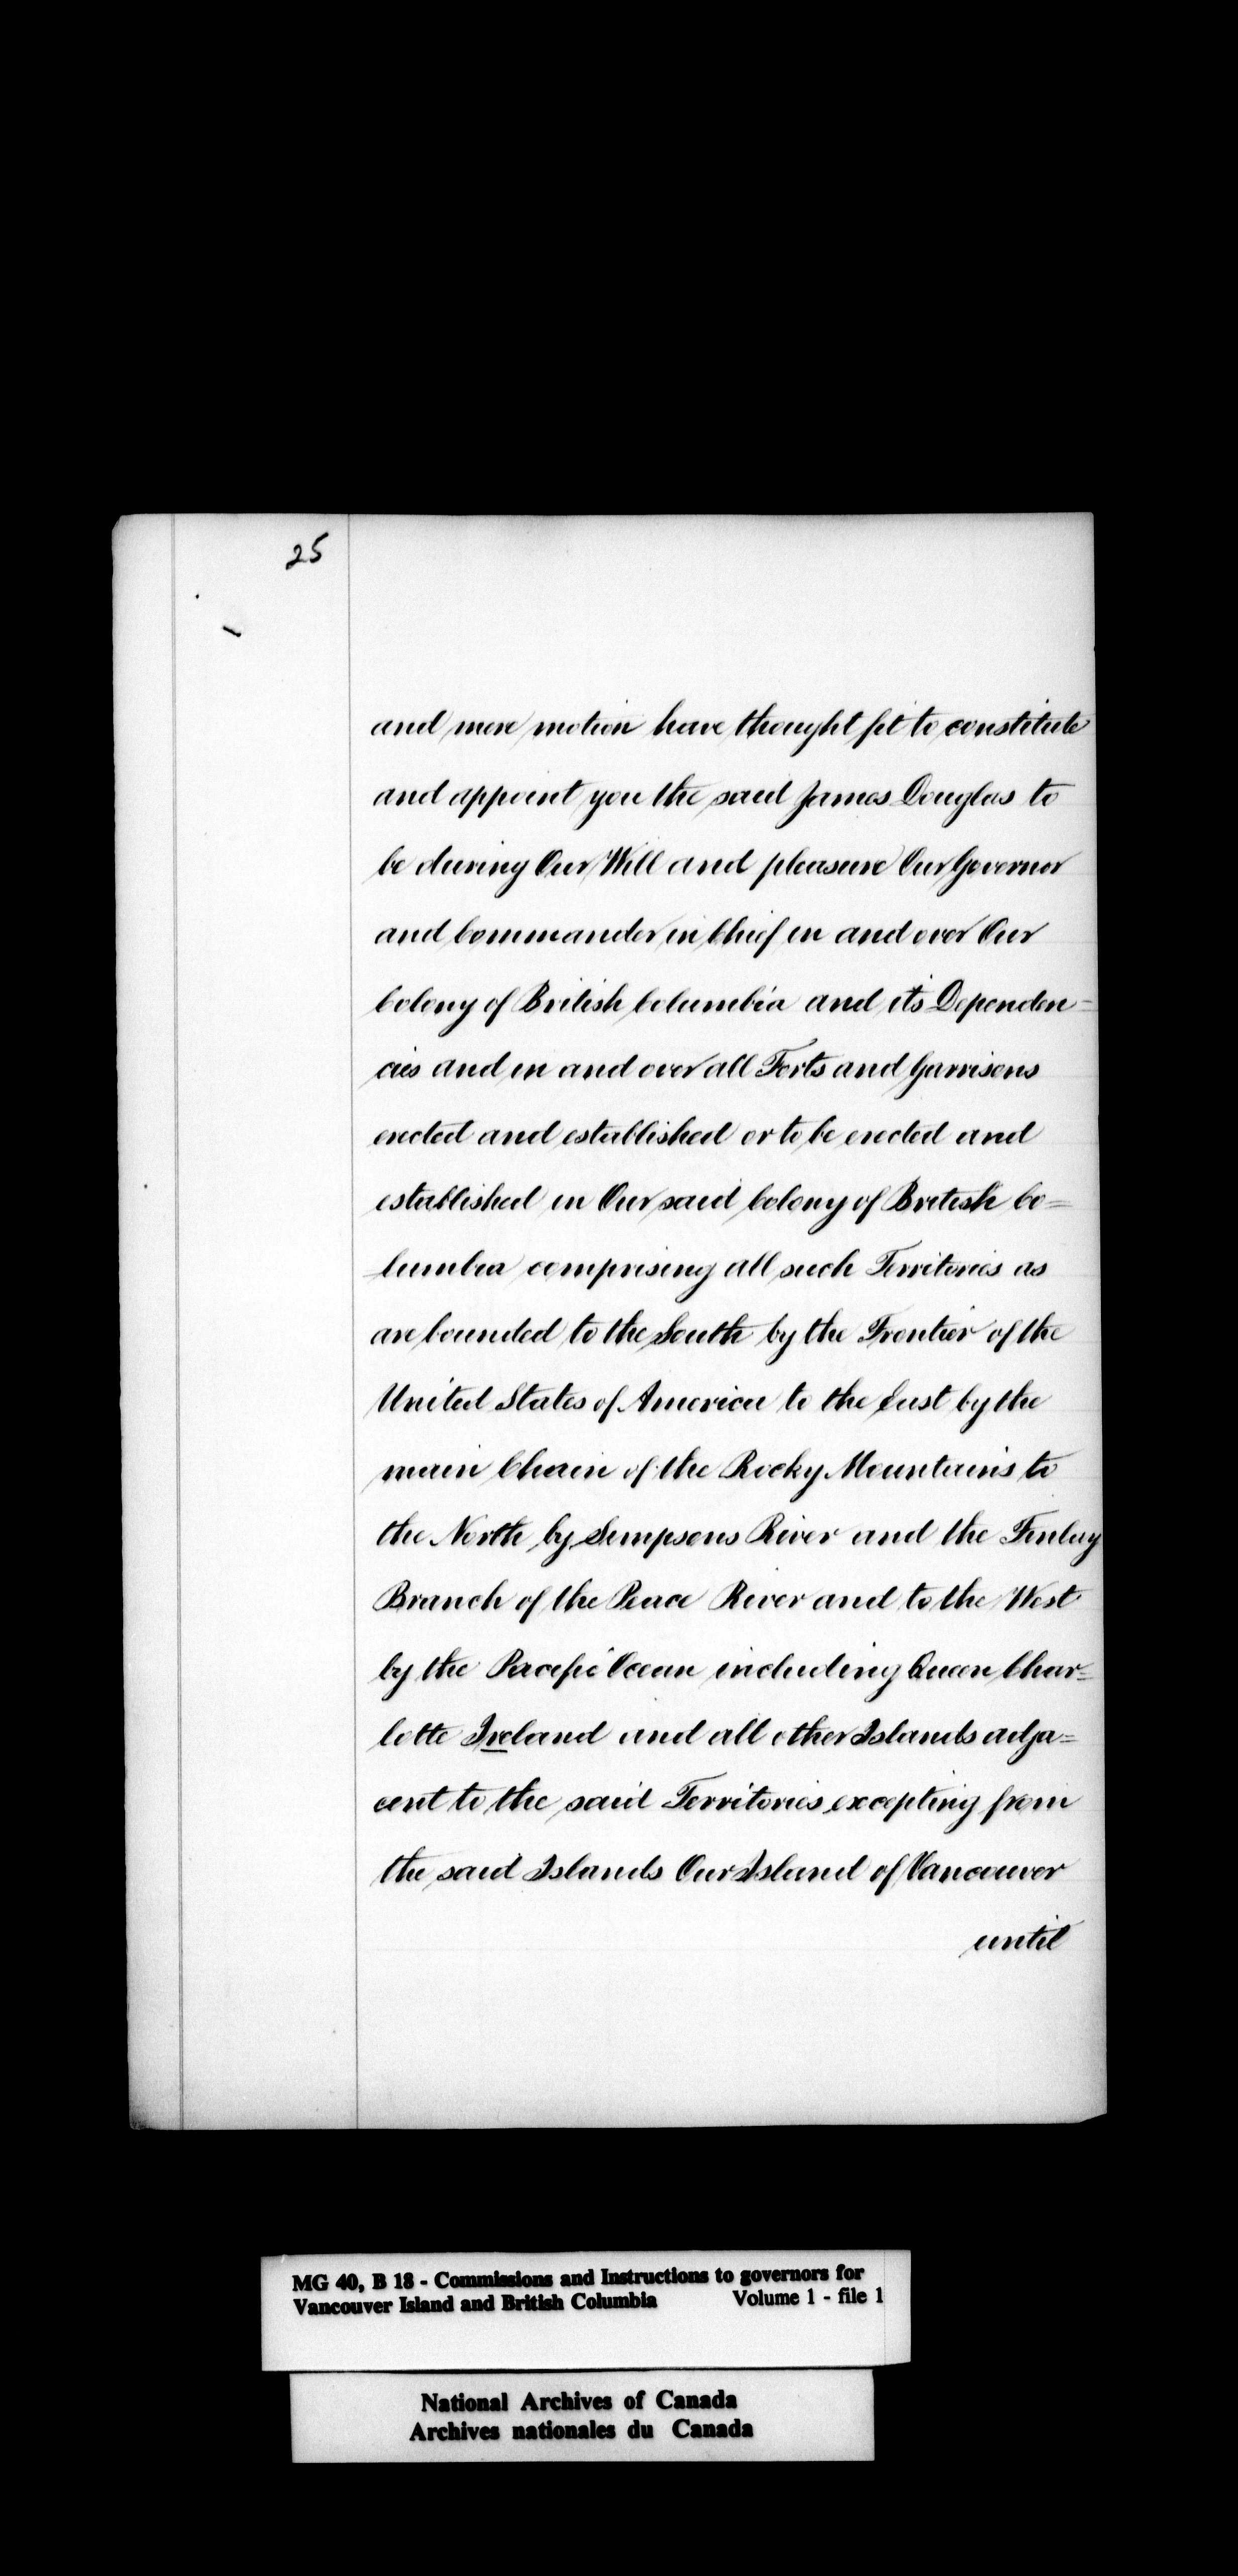 25
and mere motion have thought fit to constitute
and appoint you the said James Douglas to
be during Our Will and pleasure Our Governor
and Commander in Chief in and over Our
Colony of British Columbia and it's Dependen=
cies and in and over all Forts and Garrisons
erected and established or to be erected and
established in Our said Colony of British Co=
lumbia comprising all such Territories as
are bounded to the South by the Frontier of the
United States of America to the East by the
main Chain of the Rocky Mountains to
the North by Simpsons River and the Finlay
Branch of the Peace River and to the West
by the Pacific Ocean including Queen Char=
lotte Ireland and all other Islands adja=
cent to the said Territories excepting from
the said Islands Our Island of Vancouver
until
MG 40, B 18 - Commissions and Instructions to governors for
Vancouver Island and British Columbia Volume 1 - file 1
National Archives of Canada
Archives nationales du Canada